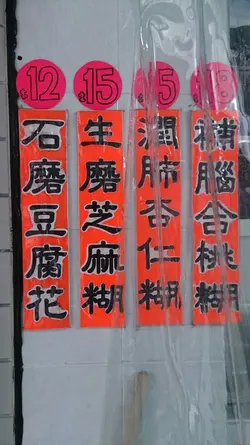 $12
石磨豆腐花
$15
生磨芝麻糊
5
潤肺杏仁糊
18
補腦合桃糊